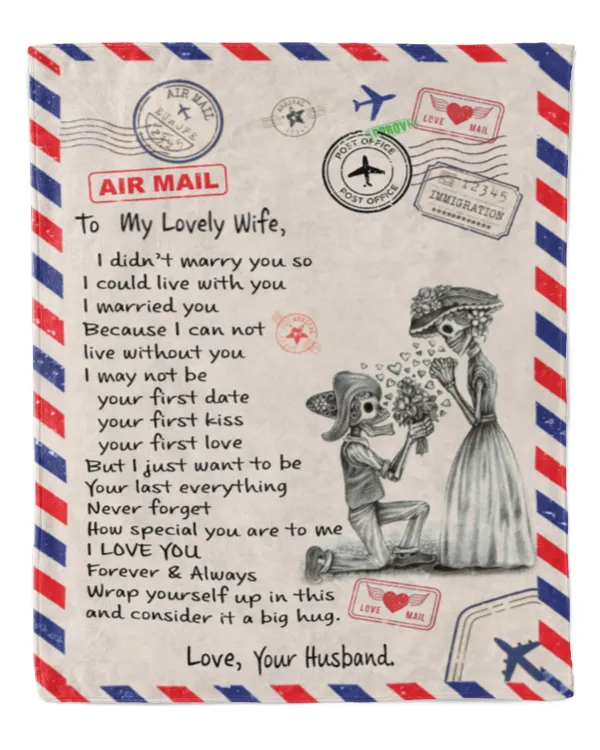 AIR MAIL
EUROPE
12345
APPROV
LOVE MAIL
POST OFFICE
POST OFFICE
12345
IMMIGRATION
AIR MAIL
To My Lovely Wife,
I didn't marry you so
I could live with you
I married you
Because I can not
live without you
I may not be
your first date
your first kiss
your first love
But I just want to be
Your last everything
Never forget
How special you are to me
I LOVE YOU
Forever & Always
Wrap yourself up in this
and consider it a big hug.
LOVE MAIL
Love, Your Husband.